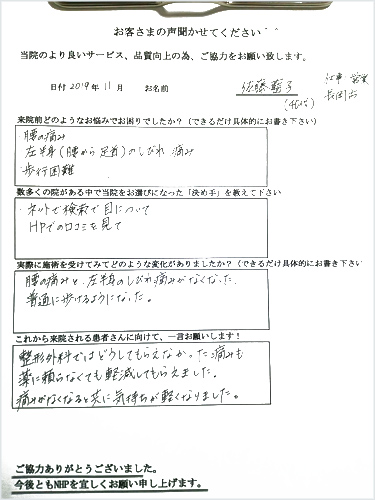 お客さまの声聞かせてください^ ^
当院のより良いサービス、品質向上の為、ご協力をお願い致します。
日付 2019年11月 お名前 佐藤 子 仕事 営業
(40代) 長岡市
来院前どのようなお悩みでお困りでしたか？（できるだけ具体的にお書き下さい）
腰の痛み
左半身（腰から足首）のしびれ 痛み
歩行困難
数多くの院がある中で当院をお選びになった「決め手」を教えて下さい
・ネットで検索で目について
HPでの口コミを見て
実際に施術を受けてみてどのような変化がありましたか？（できるだけ具体的にお書き下さい
腰の痛みと、左半身のしびれ痛みがなくなった.
普通に歩けるようになった。
これから来院される患者さんに向けて、一言お願いします！
整形外科ではどうしてもらえなかった痛みも
薬に頼らなくても軽減してもらえました。
痛みがなくなると共に気持ちが軽くなりました。
ご協力ありがとうございました。
今後ともNHPを宜しくお願い申し上げます。